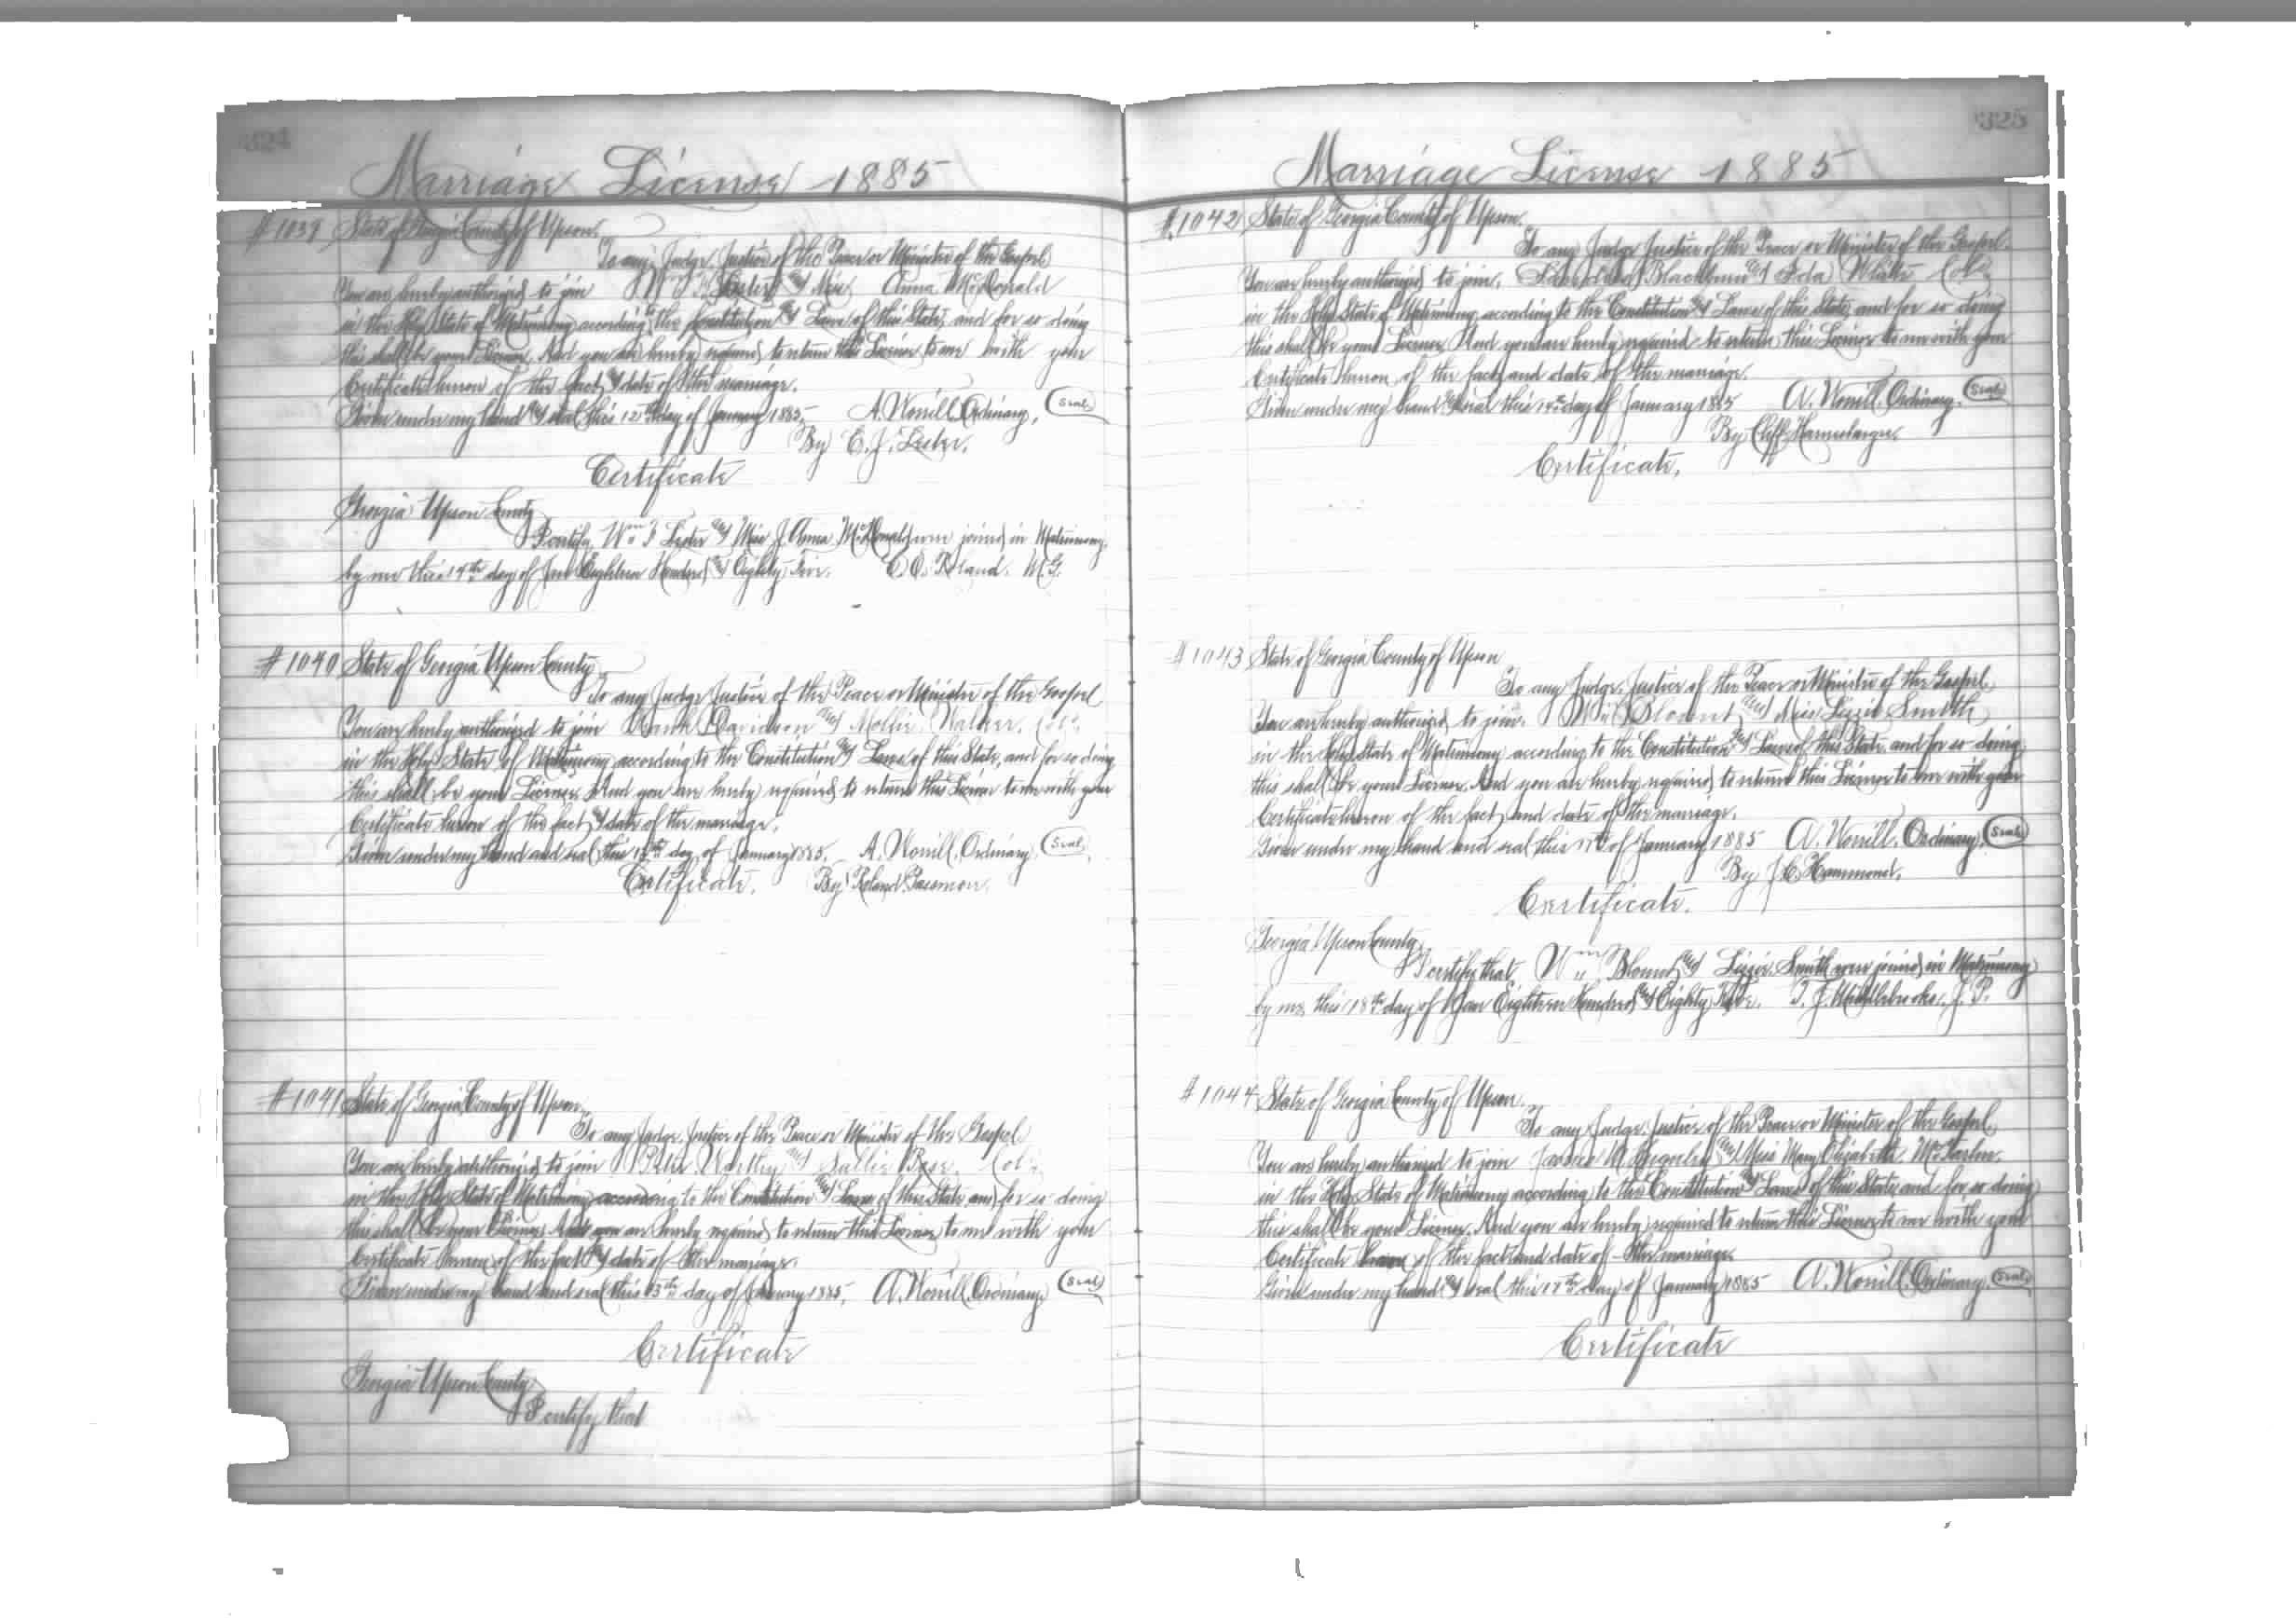 324
Marriage License 1885
#1039 State of Georgia County of Upson.
To any Judge, Justice of the Peace or Minister of the Gospel
You are hereby authorized to join Lester and Miss Anna McDonald
in the Holy State of Matrimony according to the Constitution and Laws of this State, and for so doing
this shall be your License. And you are hereby required to return this License to me with your
Certificate hereon of the fact and date of the marriage.
Given under my hand and seal this 12th day of January 1885. A. Worrill, Ordinary. (Seal)
By C. J. Lester.
Certificate
Georgia Upson County
I certify Wm Lester and Miss J. Anna McDonald were joined in Matrimony
by me this 14th day of Jan Eighteen Hundred and Eighty Five. M.G.
#1040 State of Georgia Upson County
To any Judge Justice of the Peace or Minister of the Gospel
You are hereby authorized to join Davidson and Mollie Walker. Col.
in the Holy State of Matrimony according to the Constitution and Laws of this State, and for so doing
this shall be your License. And you are hereby required to return this License to me with your
Certificate hereon of the fact and date of the marriage.
Given under my hand and seal this day of January 1885. A. Worrill, Ordinary (Seal)
Certificate. By Roland
#1041 State of Georgia, County of Upson.
To any Judge, Justice of the Peace or Minister of the Gospel
You are hereby authorized to join Worthy and Sallie Col.
in the Holy State of Matrimony according to the Constitution and Laws of this State and for so doing
this shall be your License. And you are hereby required to return this License to me with your
Certificate hereon of the fact and date of the marriage.
Given under my hand and seal this day of January 1885. A. Worrill, Ordinary (Seal)
Certificate
Georgia Upson County
I certify that
325
Marriage License 1885
#1042 State of Georgia County of Upson.
To any Judge Justice of the Peace or Minister of the Gospel.
You are hereby authorized to join. Blackburn and White Col.
in the Holy State of Matrimony according to the Constitution and Laws of this State, and for so doing
this shall be your License. And you are hereby required to return this License to me with your
Certificate hereon of the fact and date of the marriage.
Given under my hand and seal this 14th day of January 1885 A. Worrill, Ordinary. (Seal)
By Cliff
Certificate.
#1043 State of Georgia County of Upson
To any Judge, Justice of the Peace or Minister of the Gospel,
You are hereby authorized to join. Blount and Miss Lizzie Smith
in the Holy State of Matrimony according to the Constitution and Laws of this State, and for so doing
this shall be your License. And you are hereby required to return this License to me with your
Certificate hereon of the fact and date of the marriage.
Given under my hand and seal this 17th of January 1885 A. Worrill, Ordinary. (Seal)
By J. C. Hammond.
Certificate.
Georgia, Upson County,
I certify that, Wm Blount and Lizzie Smith were joined in Matrimony
by me this 18th day of Jan Eighteen Hundred and Eighty Five. T. J. J. P.
#1044 State of Georgia County of Upson.
To any Judge, Justice of the Peace or Minister of the Gospel,
You are hereby authorized to join and Miss Mary Elizabeth
in the Holy State of Matrimony according to the Constitution and Laws of this State, and for so doing
this shall be your License. And you are hereby required to return this License to me with your
Certificate hereon of the fact and date of the marriage.
Given under my hand and seal this 17th day of January 1885 A. Worrill, Ordinary. (Seal)
Certificate